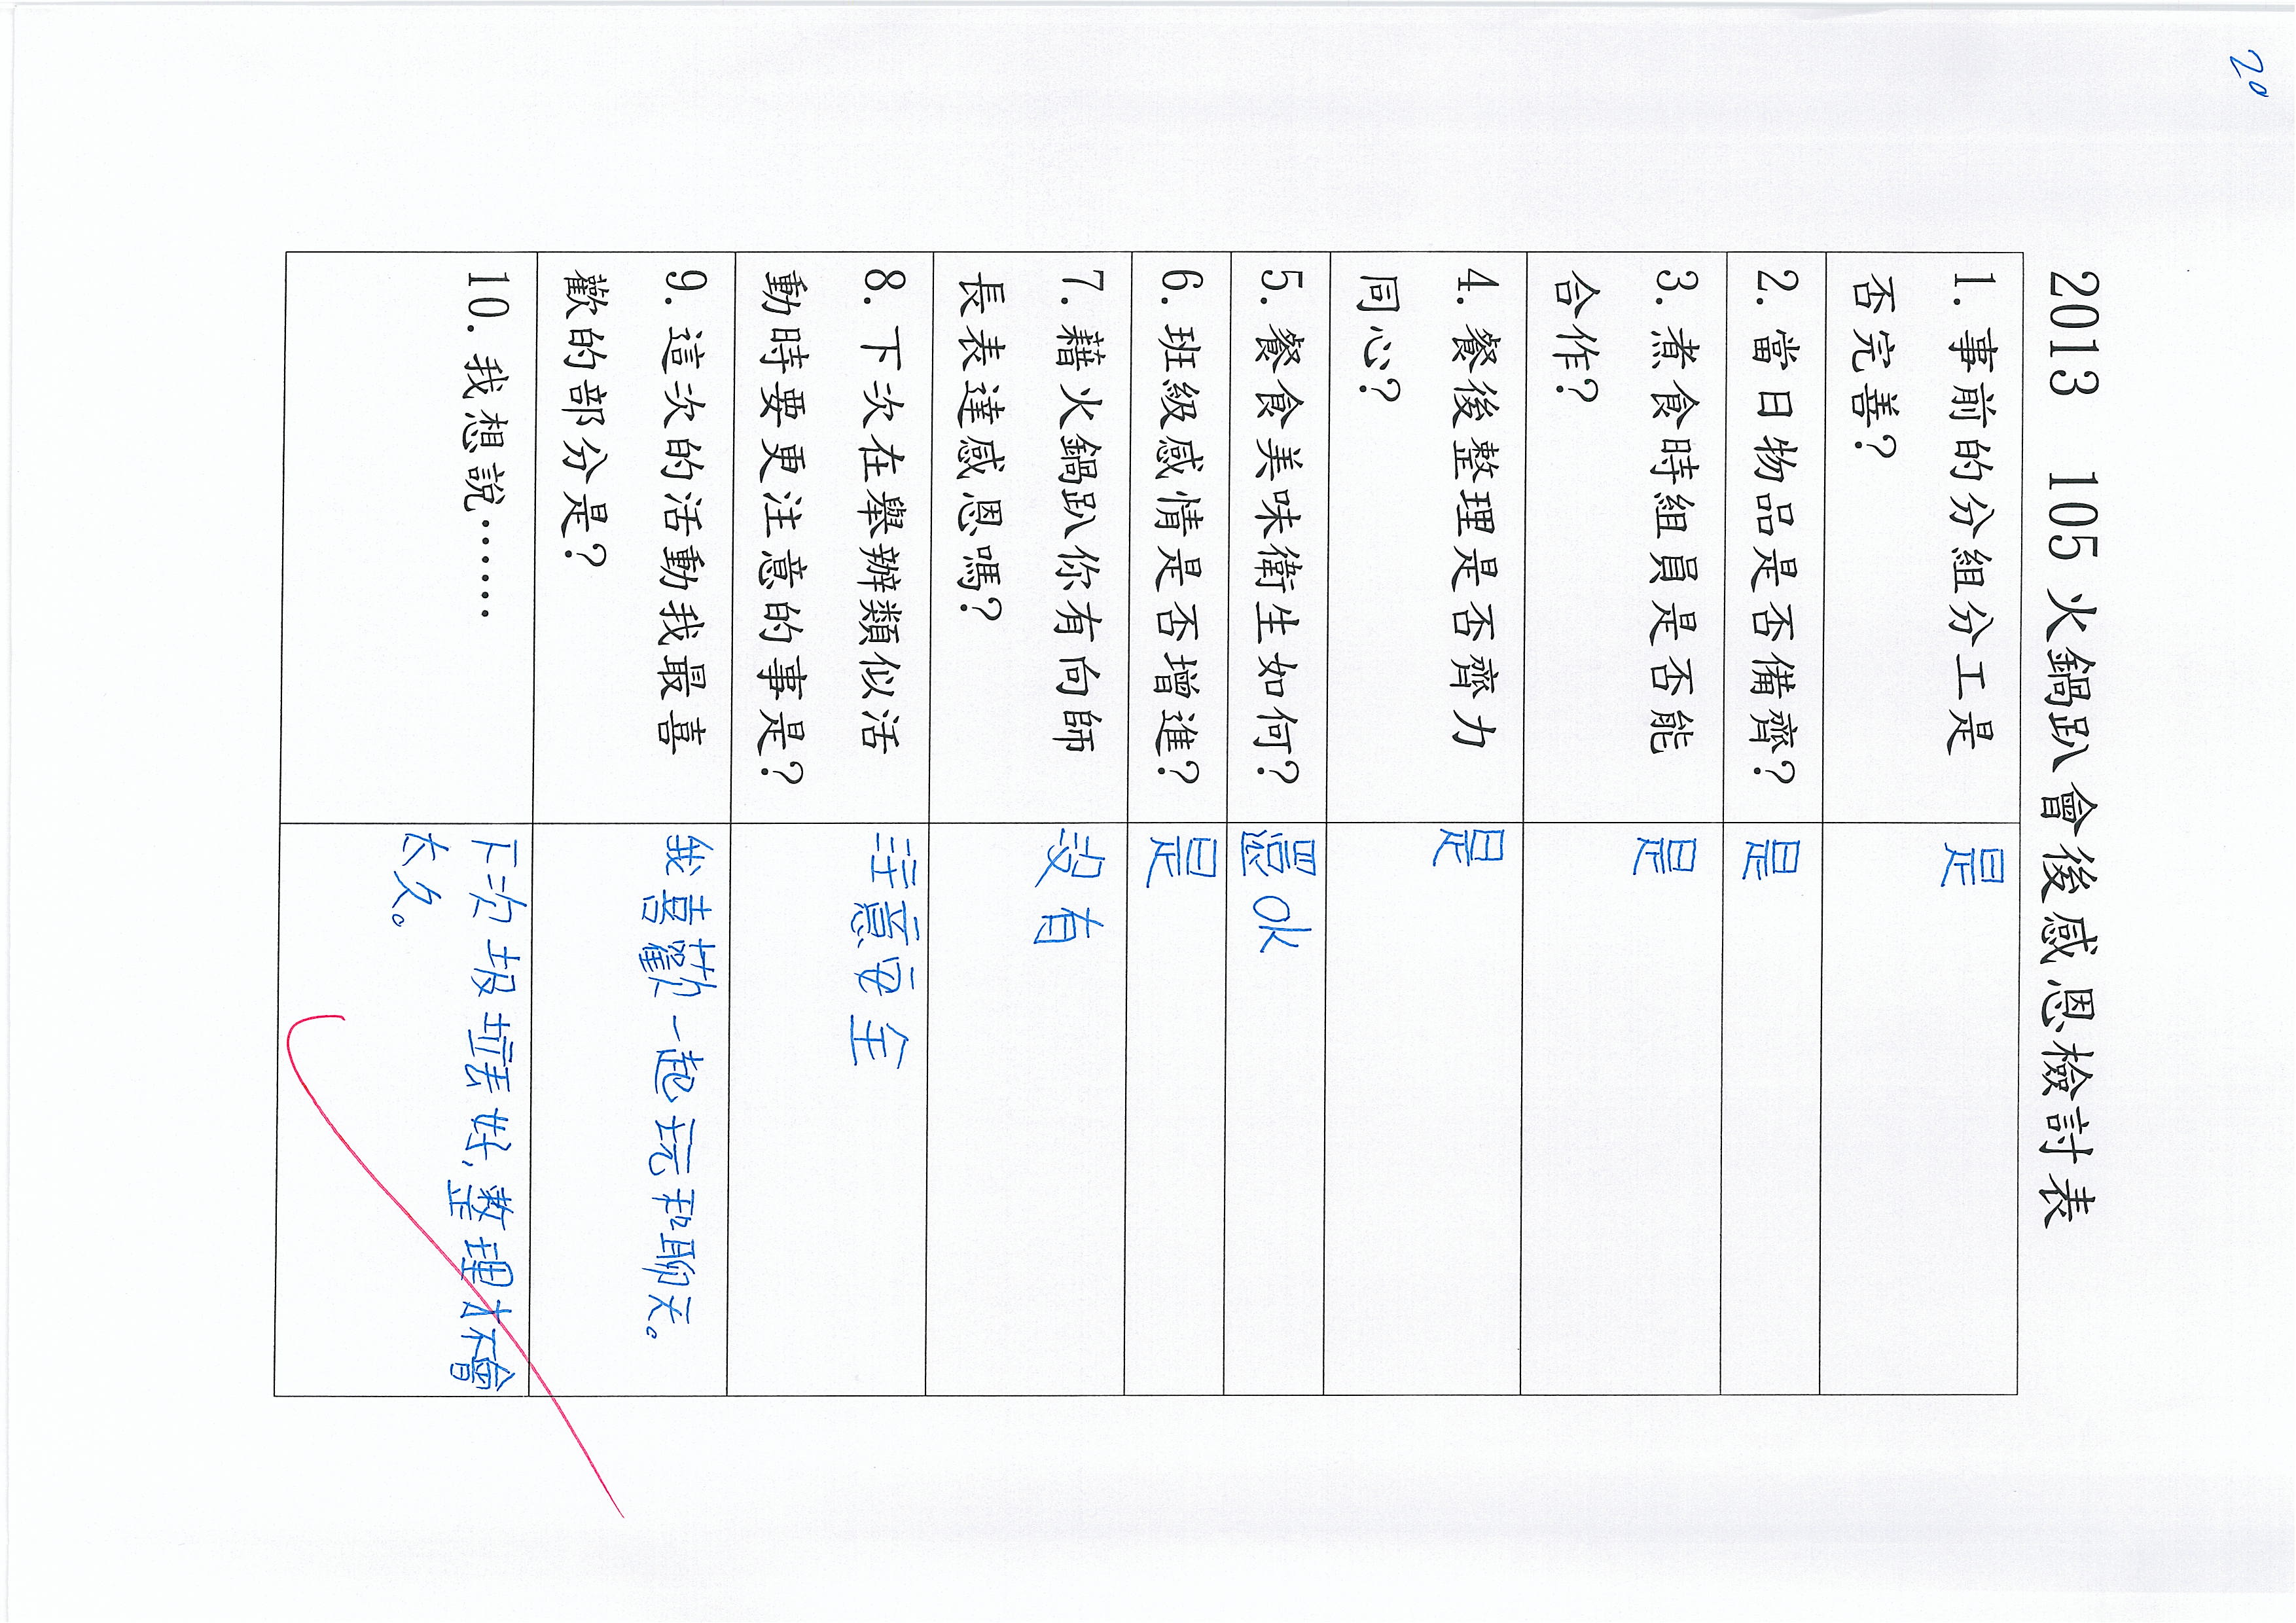 20
2013 105 火鍋趴會後感恩檢討表
1. 事前的分組分工是
否完善?
是
2. 當日物品是否備齊?
是
3. 煮食時組員是否能
合作?
是
4. 餐後整理是否齊力
同心?
是
5. 餐食美味衛生如何?
還ok
6. 班級感情是否增進?
是
7. 藉火鍋趴你有向師
長表達感恩嗎?
沒有
8. 下次在舉辦類似活
動時要更注意的事是?
注意安全
9. 這次的活動我最喜
歡的部分是?
我喜歡一起玩和聊天。
10. 我想說……
下次 垃圾 好, 整理才不會
太久。